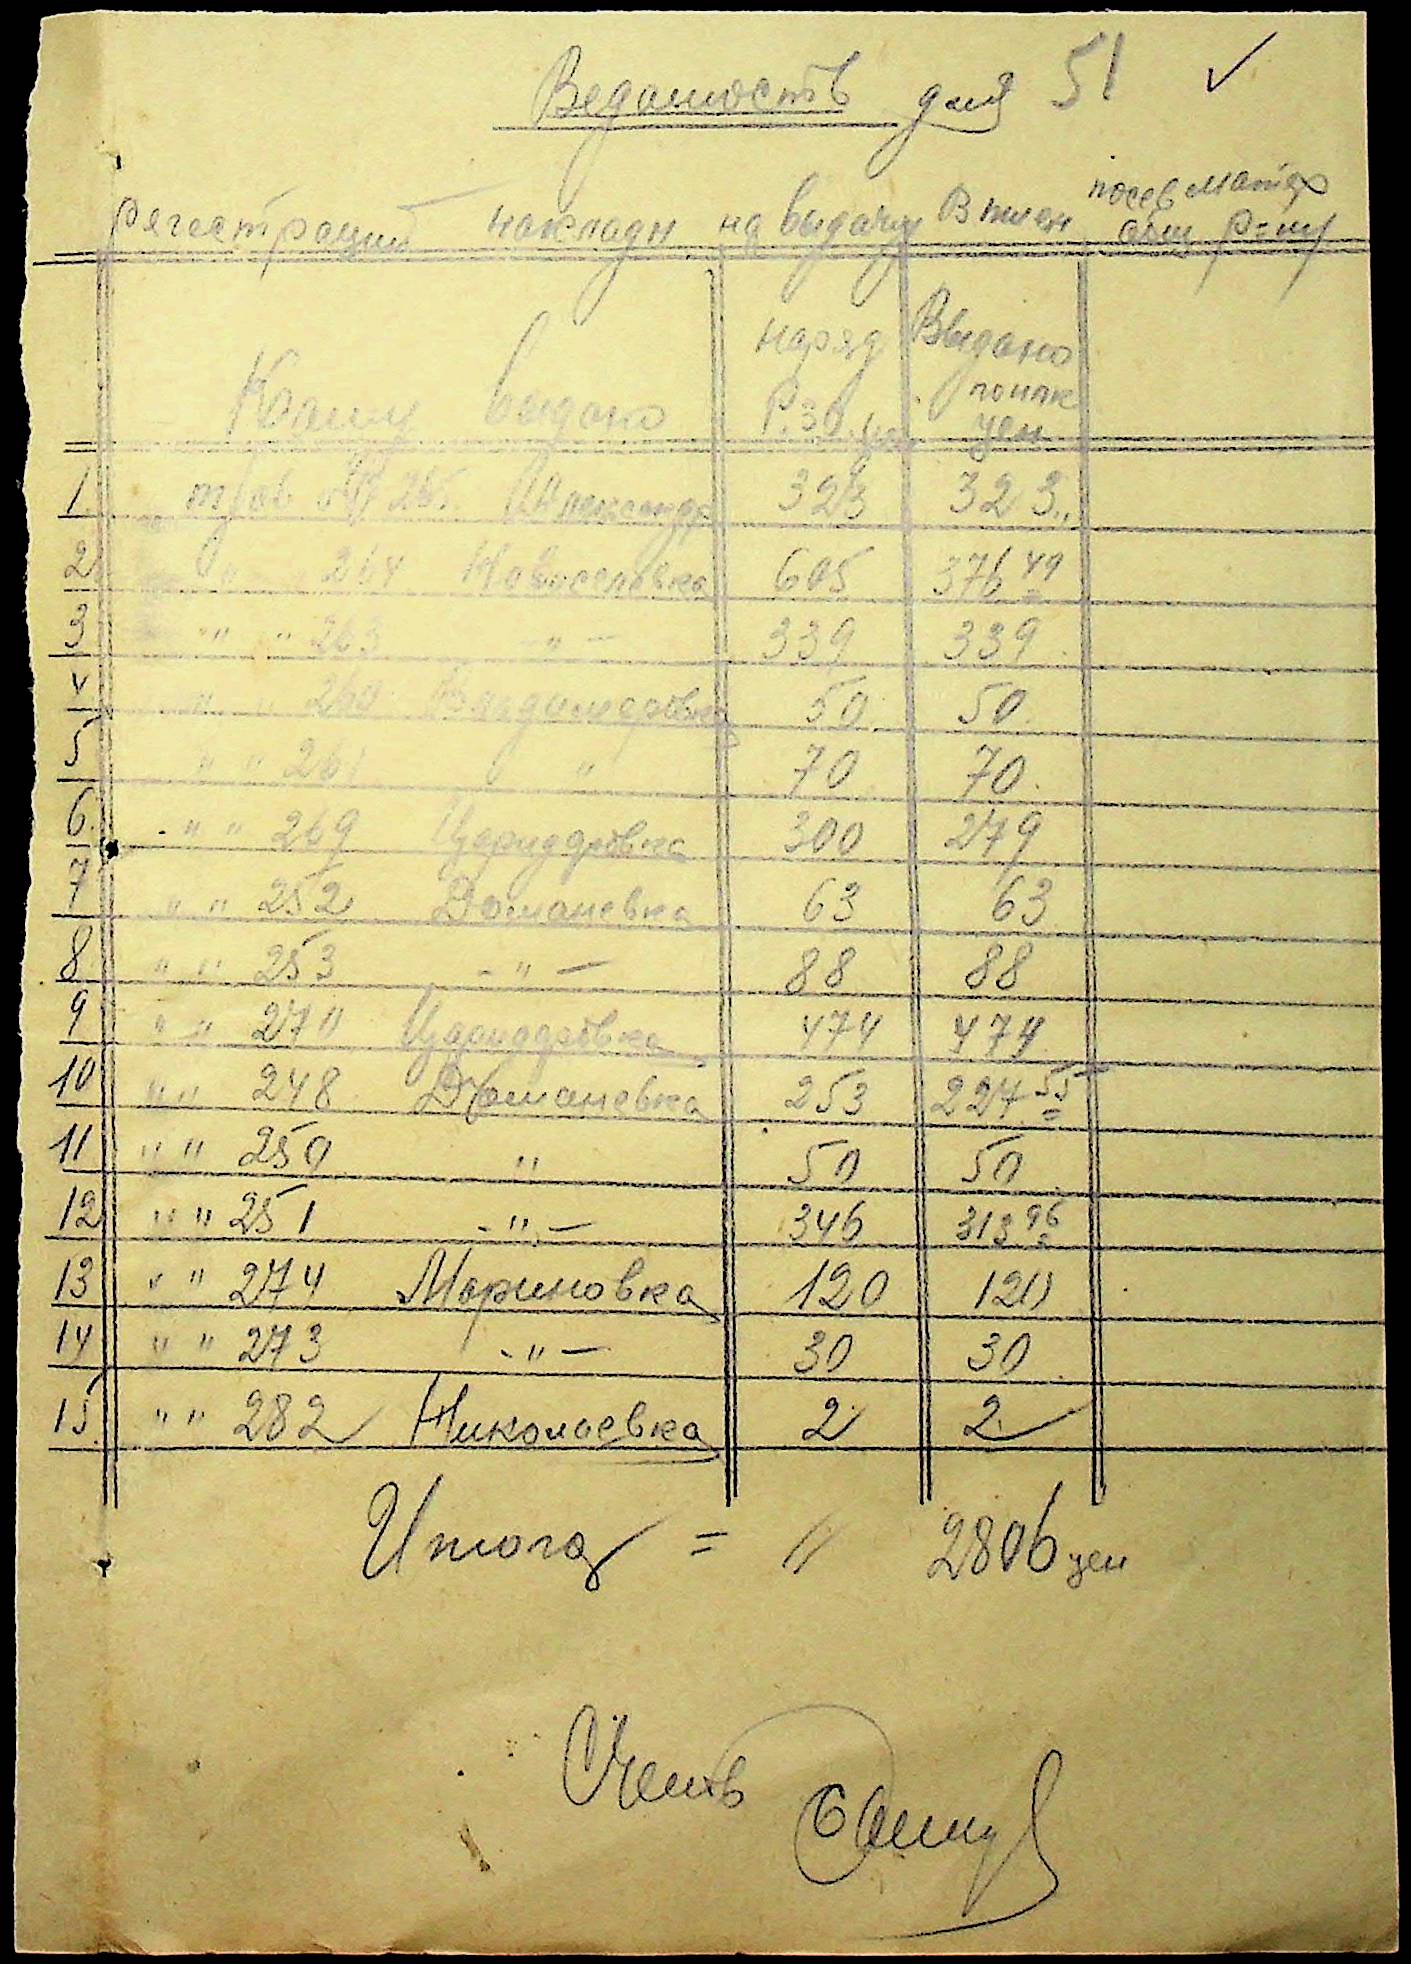 Ведомость для 51
регестраций накладн на выдачу В тиен посев матер
Кому выдано наряд Р.30.цн Ввыдано понак цен
1 265 Александр 323 323
2 " 264 Новоселовка 605 376 49
3 " " 263 — " — 339 339
4 " " 260 Владимеровка 50 50
5 " " 261 " 70 70
6 " " 269 300 279
7 " " 252 Доманевка 63 63
8 " " 253 - " — 88 88
9 " " 270 474 474
10 " " 248 Доманевка 253 227 55
11 " " 250 " 50 50
12 " " 251 - " — 346 313 96
13 " " 274 Мариновка 120 120
14 " " 273 - " — 30 30
15 " " 282 Николаевка 2 2
Итога = " 2806 цен